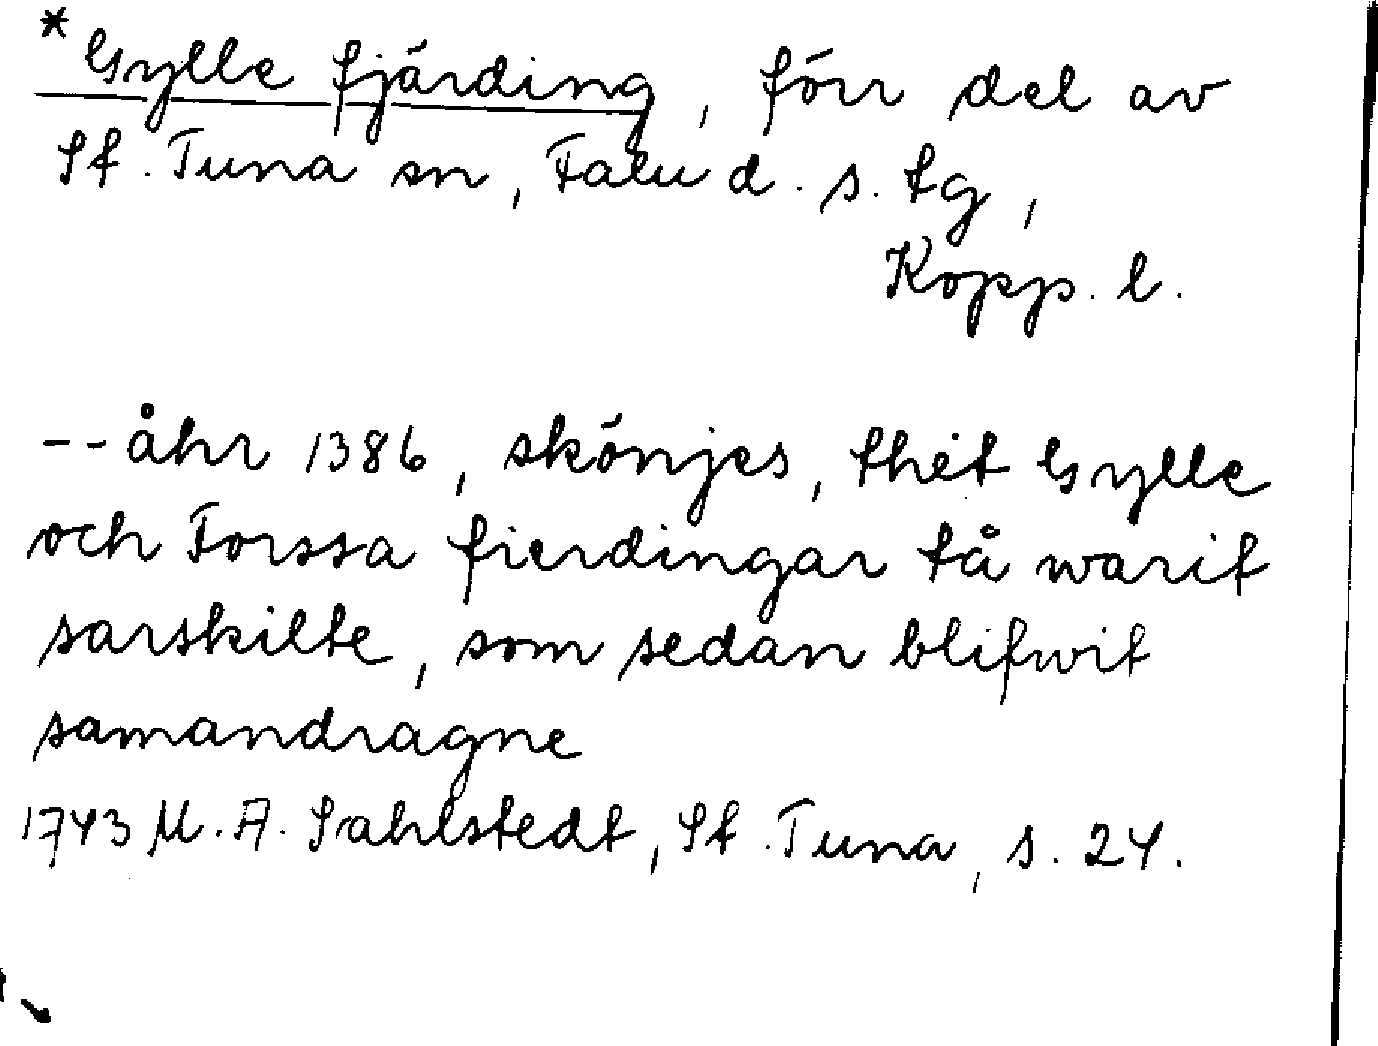 * Gylle fjärding, förr del av
St. Tuna sn, Falu d. s. tg,
Kopp. l.
-- åhr 1386, skönjes, thet Gylle
och Forssa fierdingar tå warit
sarskilte, som sedan blifwit
samandragne
1743 M. A. Sahlstedt, St. Tuna, s. 24.